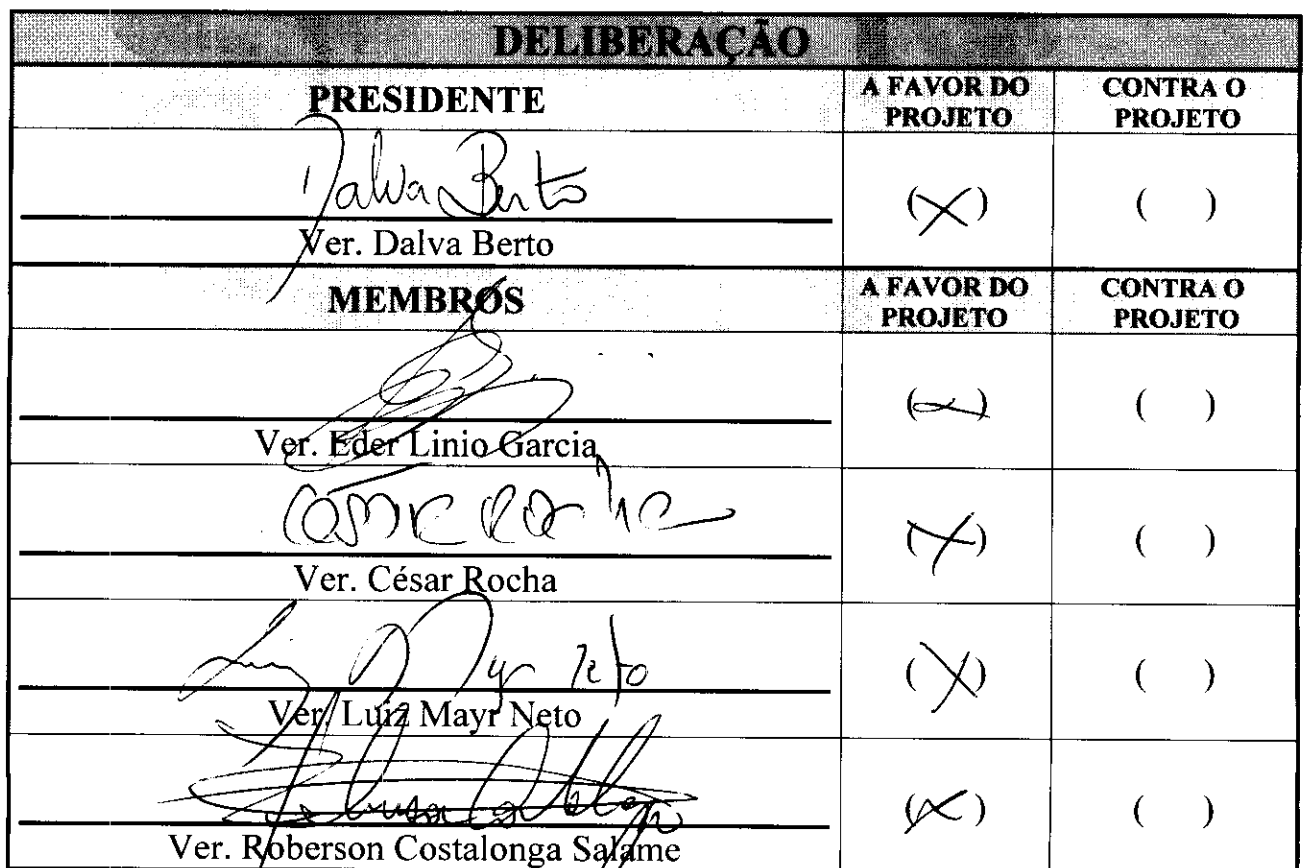 DELIBERAÇÃO
PRESIDENTE
A FAVOR DO PROJETO
CONTRA O PROJETO
Dalva Berto
(X)
( )
Ver. Dalva Berto
MEMBROS
A FAVOR DO PROJETO
CONTRA O PROJETO
( )
Ver. Eder Linio Garcia
César Rocha
(X)
( )
Ver. César Rocha
Luiz Mayr Neto
(X)
( )
Ver. Luiz Mayr Neto
(X)
( )
Ver. Roberson Costalonga Salame